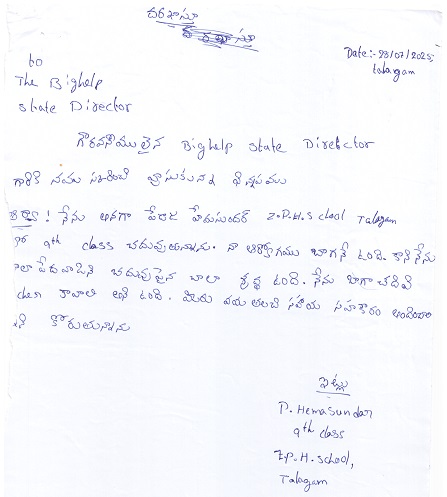 దరఖాస్తు
Date:- 23/07/2025,
Talagam
to
The Bighelp
state Director
గౌరవనీయులైన Bighelp state Director
గారికి నమస్కరించి వ్రాసుకున్న విన్నపము
అయ్యా! నేను అనగా హేమసుందర్ Z.P.H.School Talagam
లో 9th class చదువుచున్నాను. నా ఆరోగ్యము బాగానే ఉంది. కాని నేను
చాలా పేదవాడిని చదువుపైన చాలా శ్రద్ధ ఉంది. నేను బాగా చదివి
కావాలి అని ఉంది. మీరు దయ తలచి సహాయ సహకారం అందించాలని
కోరుచున్నాను
ఇట్లు
P. Hemasundar
9th class
Z.P.H.school,
Talagam